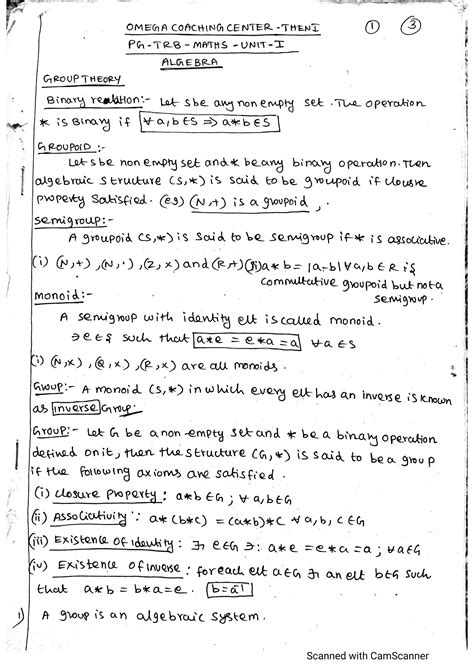 OMEGA COACHING CENTER - THENI ① ③
PG - TRB - MATHS - UNIT - I
ALGEBRA
GROUP THEORY
Binary relation:- Let S be any non empty set. The operation
* is Binary if ∀ a,b ∈ S ⇒ a*b ∈ S
GROUPOID :-
Let S be non empty set and * be any binary operation. Then
algebraic structure (S,*) is said to be groupoid if closure
property satisfied. (eg) (N,+) is a groupoid.
semigroup:-
A groupoid (S,*) is said to be semigroup if * is associative.
(i) (N,+), (N,·), (Z,×) and (R,+) (ii) a*b = |a-b| ∀ a,b ∈ R is
commutative groupoid but not a
semigroup.
Monoid:-
A semigroup with identity elt is called monoid.
∋ e ∈ S such that a*e = e*a = a ∀ a ∈ S
(i) (N,×), (Q,×), (R,×) are all monoids.
Group:- A monoid (S,*) in which every elt has an inverse is known
as inverse Group.
Group:- Let G be a non-empty set and * be a binary operation
defined on it, then the structure (G,*) is said to be a group
if the following axioms are satisfied.
(i) closure property : a*b ∈ G ; ∀ a,b ∈ G
(ii) Associativity : a*(b*c) = (a*b)*c ∀ a,b,c ∈ G
(iii) Existence of identity : ∃ e ∈ G ∋: a*e = e*a = a ; ∀ a ∈ G
(iv) Existence of inverse : for each elt a ∈ G ∃ an elt b ∈ G such
that a*b = b*a = e. b = a⁻¹
1) A group is an algebraic system.
Scanned with CamScanner